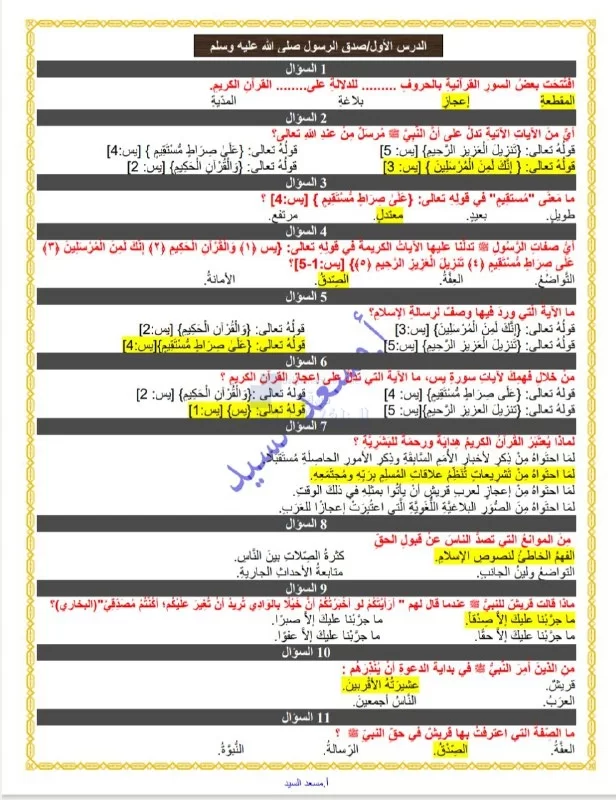 الدرس الأول/صدق الرسول صلى الله عليه وسلم
السؤال 1
افْتُتحَت بعضُ السورِ القرآنيةِ بالحروفِ ......... للدلالةِ على........ القرآنِ الكريمِ.
المقطعةِ إعجازِ بلاغةِ المدَيةِ
السؤال 2
أيٌّ منَ الآياتِ الآتيةِ تدلُّ على أنَّ النَّبيَّ ﷺ مُرسلٌ منْ عندِ اللهِ تعالى؟
قولُهُ تعالى: {تَنْزِيلَ الْعَزِيزِ الرَّحِيمِ} [يس: 5] قولُهُ تعالى: {عَلَىٰ صِرَاطٍ مُّسْتَقِيمٍ } [يس:4]
قولُهُ تعالى: { إِنَّكَ لَمِنَ الْمُرْسَلِينَ } [يس: 3] قولُهُ تعالى: {وَالْقُرْآنِ الْحَكِيمِ} [يس: 2]
السؤال 3
ما مَعْنَى "مُستقيمٍ" في قولِهِ تعالى: {عَلَىٰ صِرَاطٍ مُّسْتَقِيمٍ } [يس:4] ؟
طويلٍ. بعيدٍ. معتدلٍ. مرتفعٍ.
السؤال 4
أيُّ صفاتِ الرَّسولِ ﷺ تدلُّنا عليها الآياتُ الكريمةُ في قولِهِ تعالى: {يس (١) وَالْقُرْآنِ الْحَكِيمِ (٢) إِنَّكَ لَمِنَ الْمُرْسَلِينَ (٣)
عَلَىٰ صِرَاطٍ مُّسْتَقِيمٍ (٤) تَنْزِيلَ الْعَزِيزِ الرَّحِيمِ (٥)} [يس:1-5]؟
التَّواضُعُ. العِفَّةُ. الصِّدقُ. الأمانةُ.
السؤال 5
ما الآيةُ التي وردَ فيها وصفٌ لرسالةِ الإسلامِ؟
قولُهُ تعالى: {إِنَّكَ لَمِنَ الْمُرْسَلِينَ} [يس:3] قولُهُ تعالى: {وَالْقُرْآنِ الْحَكِيمِ} [يس:2]
قولُهُ تعالى: {تَنْزِيلَ الْعَزِيزِ الرَّحِيمِ} [يس:5] قولُهُ تعالى: {عَلَىٰ صِرَاطٍ مُّسْتَقِيمٍ}[يس:4]
السؤال 6
منْ خلالِ فهمِكَ لآياتِ سورةِ يس، ما الآيةُ التي تدلُّ على إعجازِ القرآنِ الكريمِ ؟
قولُهُ تعالى: {عَلَى صِرَاطٍ مُّسْتَقِيمٍ} [يس: 4] قولُهُ تعالى: {وَالْقُرْآنِ الْحَكِيمِ} [يس: 2]
قولُهُ تعالى: {تَنْزِيلَ الْعَزِيزِ الرَّحِيمِ} [يس: 5] قولُهُ تعالى: {يس} [يس:1]
السؤال 7
لماذا يُعتَبَرُ القرآنُ الكريمُ هدايةً ورحمةً للبشريَّةِ ؟
لمَا احتَواهُ مِنْ ذِكرٍ لأخبارِ الأُمَمِ السَّابقةِ وذِكرِ الأمورِ الحاصلةِ مُستَقبَلًا.
لمَا احتَواهُ مِنْ تَشريعاتٍ تُنَظِّمُ علاقاتِ المُسلِمِ بربِّهِ ومُجتَمَعِهِ.
لمَا احتَواهُ مِنْ إعجازٍ لعربِ قريشٍ أنْ يأتُوا بمثلِهِ في ذلكَ الوقتِ.
لمَا احتَواهُ مِنَ الصُّوَرِ البلاغيَّةِ اللُّغويَّةِ الَّتي اعتُبِرَتْ إعجازًا للعَرَبِ.
السؤال 8
من الموانعُ التي تصدُّ الناسَ عنْ قبولِ الحقِّ
الفهمُ الخاطئُ لنصوصِ الإسلامِ. كثرةُ الصِّلاتِ بينَ النَّاسِ.
التواضعُ ولينُ الجانبِ. متابعةُ الأحداثِ الجاريةِ.
السؤال 9
ماذا قالت قريشٌ للنبيِّ ﷺ عندما قال لهم " أرَأَيْتَكُمْ لو أَخْبَرْتُكُمْ أنَّ خَيْلًا بالوادي تُريدُ أنْ تُغِيرَ عَلَيْكُم؛ أكُنْتُمْ مُصَدِّقِيَّ"(البخاري)؟
ما جرَّبْنا عليكَ إلاَّ صِدْقاً. ما جرَّبْنا عليكَ إلاَّ صبرًا.
ما جرَّبْنا عليكَ إلاَّ حقًا. ما جرَّبْنا عليكَ إلاَّ عفوًا.
السؤال 10
منِ الَّذينَ أُمِرَ النَّبيُّ ﷺ في بدايةِ الدعوةِ أنْ يُنْذِرَهُم :
قريشٌ. عشيرَتُهُ الأقْربينَ.
العربُ. النَّاسُ أجمعينَ.
السؤال 11
ما الصِّفةُ التي اعترفَتْ بها قريشٌ في حقِّ النبيِّ ﷺ ؟
العفَّةُ. الصِّدْقُ. الرِّسالةُ. النُّبوَّةُ.
أ.مسعد السيد
أ.مسعد السيد